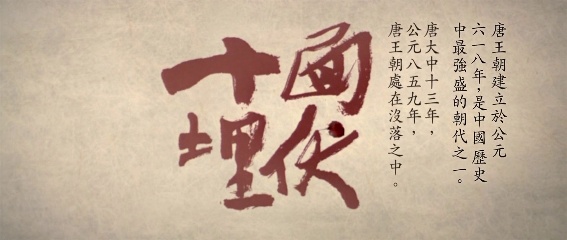 十面
埋伏
唐王朝建立於公元
六一八年，是中國歷史
中最強盛的朝代之一。
唐大中十三年，
公元八五九年，
唐王朝處在沒落之中。